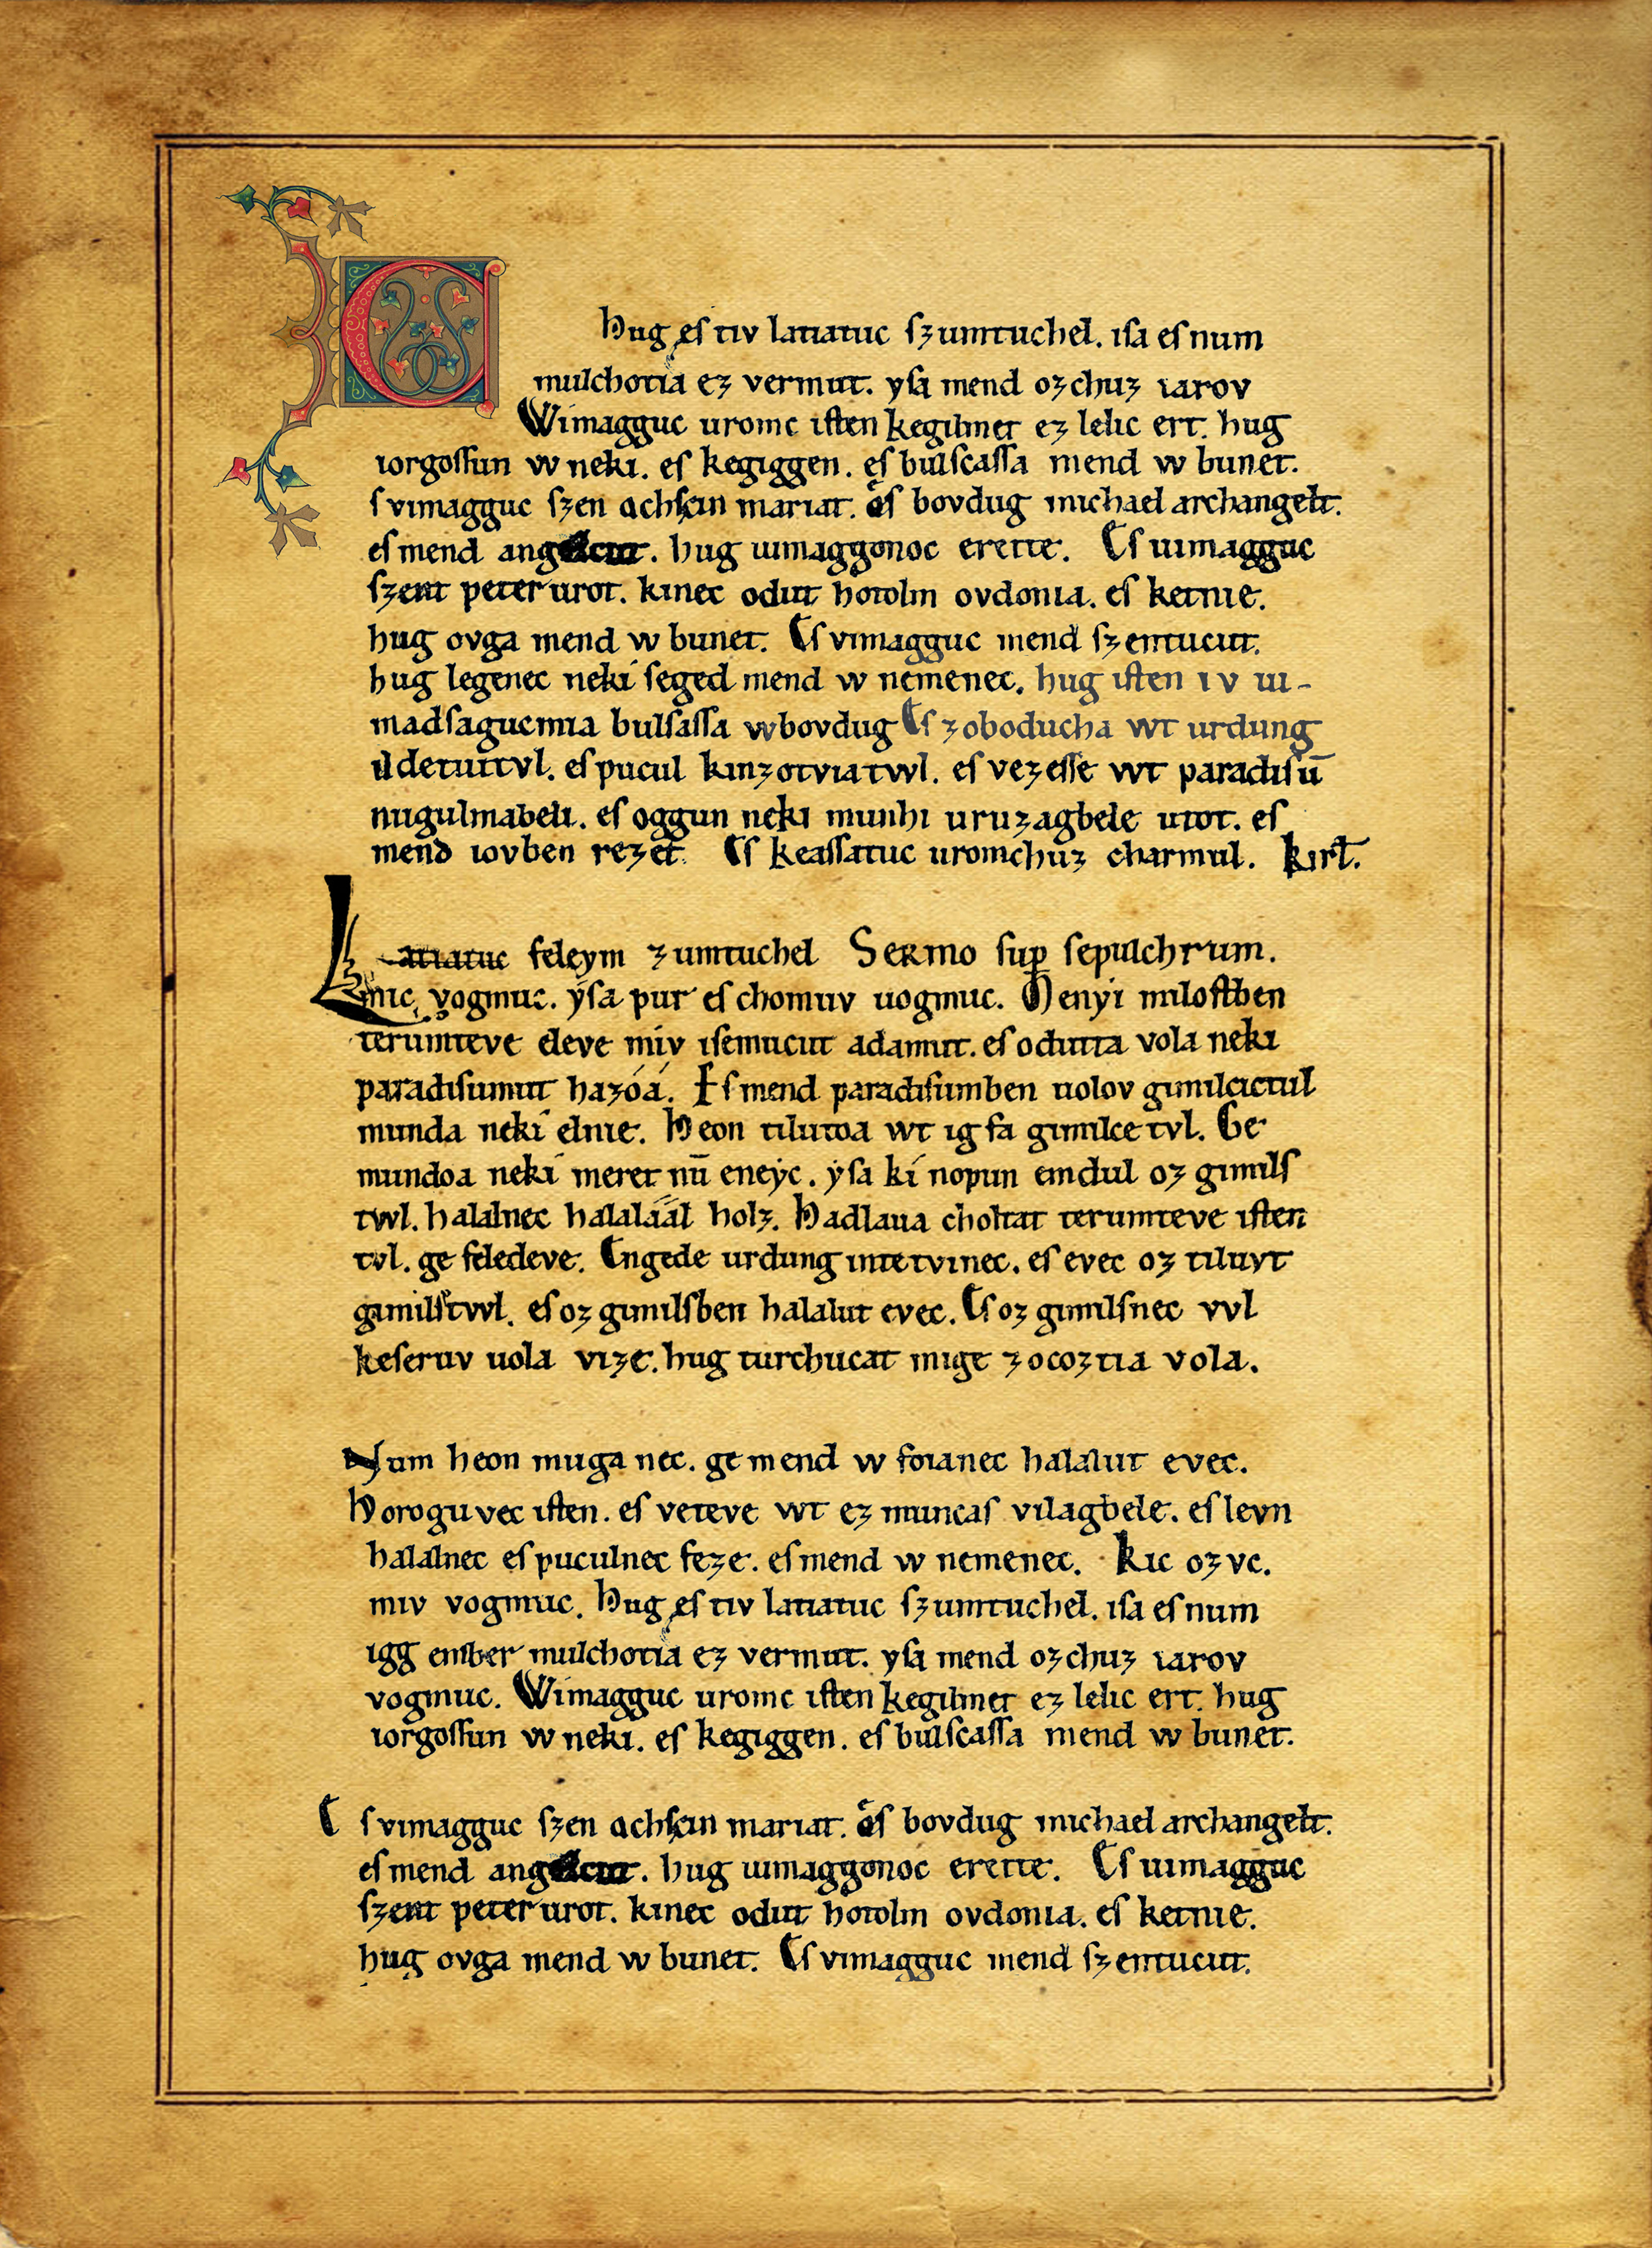 Hug eſ tiv latiatuc ſzumtuchel. iſa eſ num
mulchotia ez vermut. yſa mend ozchuz iarov
Wimagguc uromc iſten kegilmet ez lelic ert. hug
iorgoſſun w neki. eſ kegiggen. eſ bulſcaſſa mend w bunet.
ſ vimagguc ſzen achſcin mariat. eſ bovdug michael archangelt.
eſ mend . hug uimaggonoc erette. Eſ uimagguc
ſzent peter urot. kinec odut hotolm ovdonia. eſ ketnie.
hug ovga mend w bunet. Eſ vimagguc mend ſzentucut.
hug legenec neki ſeged mend w nemenec. hug iſten iv ui-
madſagucmia bulſaſſa wbovdug Eſ zoboducha wt urdung
ildetuitvl. eſ pucul kinzotviatwl. eſ vezeſſe wt paradiſū
nugulmabeli. eſ oggun neki munhi uruzagbele utot. eſ
mend iovben rezet. Eſ keaſſatuc uromchuz charmul. Kirł.
Latiatuc feleym zumtuchel Sermo ſup ſepulchrum.
mic vogmuc. yſa pur eſ chomuv uogmuc. Menyi miloſtben
terumteve eleve miv iſemucut adamut. eſ odutta vola neki
paradiſumut hazóá. Eſ mend paradiſumben uolov gimilcictul
munda neki elnie. Heon tilutoa wt ig fa gimilcetvl. Ge
mundoa neki meret nū eneyc. yſa ki nopun emdul oz gimilſ
twl. halalnec halaláál holz. Hadlaua choltat terumteve iſten
tvl. ge feledeve. Engede urdung intetvinec. eſ evec oz tiluvt
gimilſtwl. eſ oz gimilſben halalut evec. Eſ oz gimilſnec vvl
keſeruv uola vize. hug turchucat mige zocoztia vola.
Num heon muga nec. ge mend w foianec halalut evec.
Horoguvec iſten. eſ veteve wt ez muncaſ vilagbele. eſ levn
halalnec eſ puculnec feze. eſ mend w nemenec. Kic ozvc.
miv vogmuc. Hug eſ tiv latiatuc ſzumtuchel. iſa eſ num
igg ember mulchotia ez vermut. yſa mend ozchuz iarov
vogmuc. Wimagguc uromc iſten kegilmet ez lelic ert. hug
iorgoſſun w neki. eſ kegiggen. eſ bulſcaſſa mend w bunet.
E ſ vimagguc ſzen achſcin mariat. eſ bovdug michael archangelt.
eſ mend . hug uimaggonoc erette. Eſ uimagguc
ſzent peter urot. kinec odut hotolm ovdonia. eſ ketnie.
hug ovga mend w bunet. Eſ vimagguc mend ſzentucut.